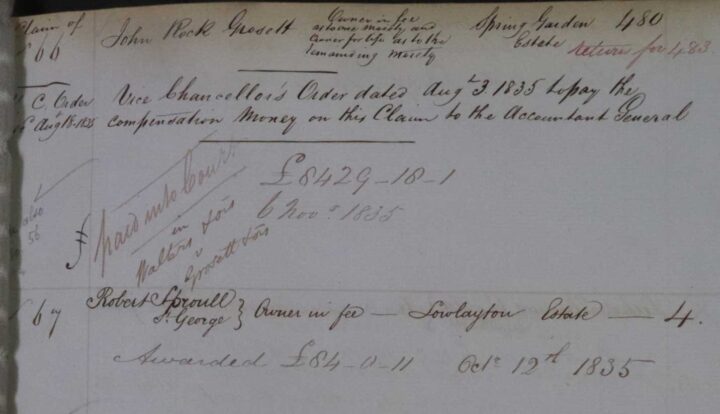 Claim of
66
John Rock Grosett
Owner in fee
as to one moiety and
Owner for life as to the
remaining moiety
Spring Garden
Estate
480
return for 483
V. C. Order
Augt 18. 1835
Vice Chancellor's Order dated Augt 3. 1835 to pay the
compensation Money on this Claim to the Accountant General
£8429-18-1
6 Novr 1835
paid into Court
in
Walters & ors
v
Grosett & ors
also
56
67
Robert Sproull
St. George
} Owner in fee — Lowlayton Estate — 4.
Awarded £84-0-11 Octr 12th 1835